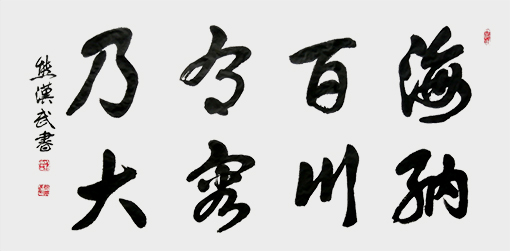 海納
百川
有容
乃大
熊漢武書